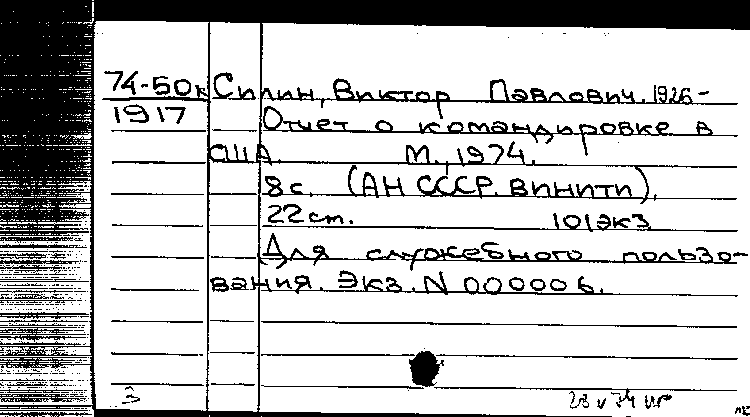 74-50к Силин, Виктор Павлович. 1926-
1917 Отчет о командировке в
США. М., 1974.
8 с. (АН СССР. ВИНИТИ).
22 см. 101экз
Для служебного пользо-
вания. Экз. N 000006.
3